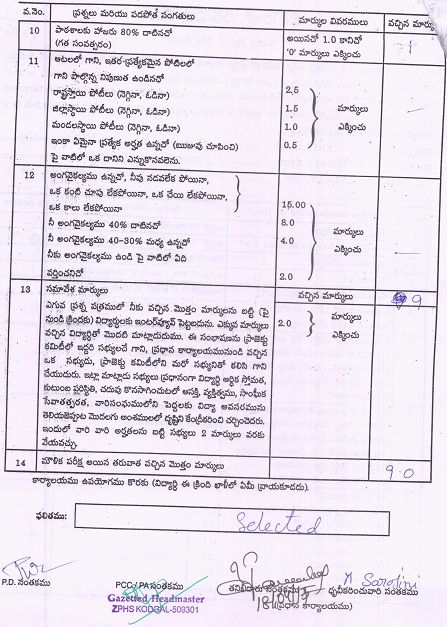 వ.నెం. ప్రశ్నలు మరియు పదపోత సంగతులు మార్కుల వివరములు వచ్చిన మార్కు
10 పాఠశాలకు హాజరు 80% దాటినచో అయినచో 1.0 కానిచో
(గత సంవత్సరం) '0' మార్కులు ఎక్కించు
11 ఆటలలో గాని, ఇతర-ప్రత్యేకమైన పోటిలలో
గాని పాల్గొన్న నిపుణుత ఉండినచో
రాష్ట్రస్థాయి పోటీలు (నెగ్గినా, ఓడినా) 2.5
జిల్లాస్థాయి పోటీలు (నెగ్గినా, ఓడినా) 1.5 మార్కులు
మండలస్థాయి పోటీలు (నెగ్గినా, ఓడినా) 1.0 ఎక్కించు
ఇంకా ఏమైనా ప్రత్యేక అర్హత ఉన్నచో (ఋజువు చూపించి) 0.5
పై వాటిలో ఒక దానిని ఎన్నుకొనవలెను.
12 అంగవైకల్యము ఉన్నచో, నీవు నడవలేక పోయినా,
ఒక కంటి చూపు లేకపోయినా, ఒక చేయి లేకపోయినా,
ఒక కాలు లేకపోయినా 15.00
నీ అంగవైకల్యము 40% దాటినచో 8.0
నీ అంగవైకల్యము 40-30% మధ్య ఉన్నచో 4.0 మార్కులు
నీకు అంగవైకల్యము ఉండి పై వాటిలో ఏది ఎక్కించు
వర్తించనిచో 2.0
13 సమావేశ మార్కులు వచ్చిన మార్కులు 9
ఎగువ ప్రశ్న పత్రములో నీకు వచ్చిన మొత్తం మార్కులను బట్టి (పై
నుండి క్రిందకు) విద్యార్థులకు ఇంటర్‌వ్యూన్ పెట్టబడును. ఎక్కువ మార్కులు 2.0 మార్కులు
వచ్చిన విద్యార్థితో మొదటి మాట్లాడుదుము. ఈ సంభాషణను ప్రాజెక్టు ఎక్కించు
కమిటీలో ఇద్దరి సభ్యులచే గాని, ప్రధాన కార్యాలయమునుండి వచ్చిన
ఒక సభ్యుడు, ప్రాజెక్టు కమిటీలోని మరో సభ్యునితో కలిసి గాని
చేయుదురు. ఇట్లా మాట్లాడు సభ్యులు ప్రధానంగా విద్యార్థి ఆర్థిక స్తోమత,
కుటుంబ పరిస్థితి, చదువు కొనసాగించుటలో ఆసక్తి, వ్యక్తిత్వము, సాంఘీక
సేవాతత్పరత, వారిసంఘములోని పెద్దలకు విద్యా అవసరమును
తెలియజెప్పుట మొదలగు అంశములలో దృష్టిని కేంద్రీకరించి చర్చించెదరు.
ఇందులో వారి వారి అర్హతలను బట్టి సభ్యులు 2 మార్కులు వరకు
వేయవచ్చు.
14 మౌలిక పరీక్ష అయిన తరువాత వచ్చిన మొత్తం మార్కులు 9.0
కార్యాలయము ఉపయోగము కొరకు (విద్యార్థి ఈ క్రింది ఖాళీలో ఏమీ వ్రాయకూడదు).
ఫలితము: Selected
P.D. సంతకము PCC / PA సంతకము తనిఖీదారు సంతకము M Sarojini ధృవీకరించువారి సంతకము
Gazetted Headmaster (ప్రధాన కార్యాలయము)
ZPHS KODGAL-509301